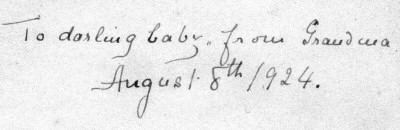 To darling baby, from Grandma
August 8th 1924.